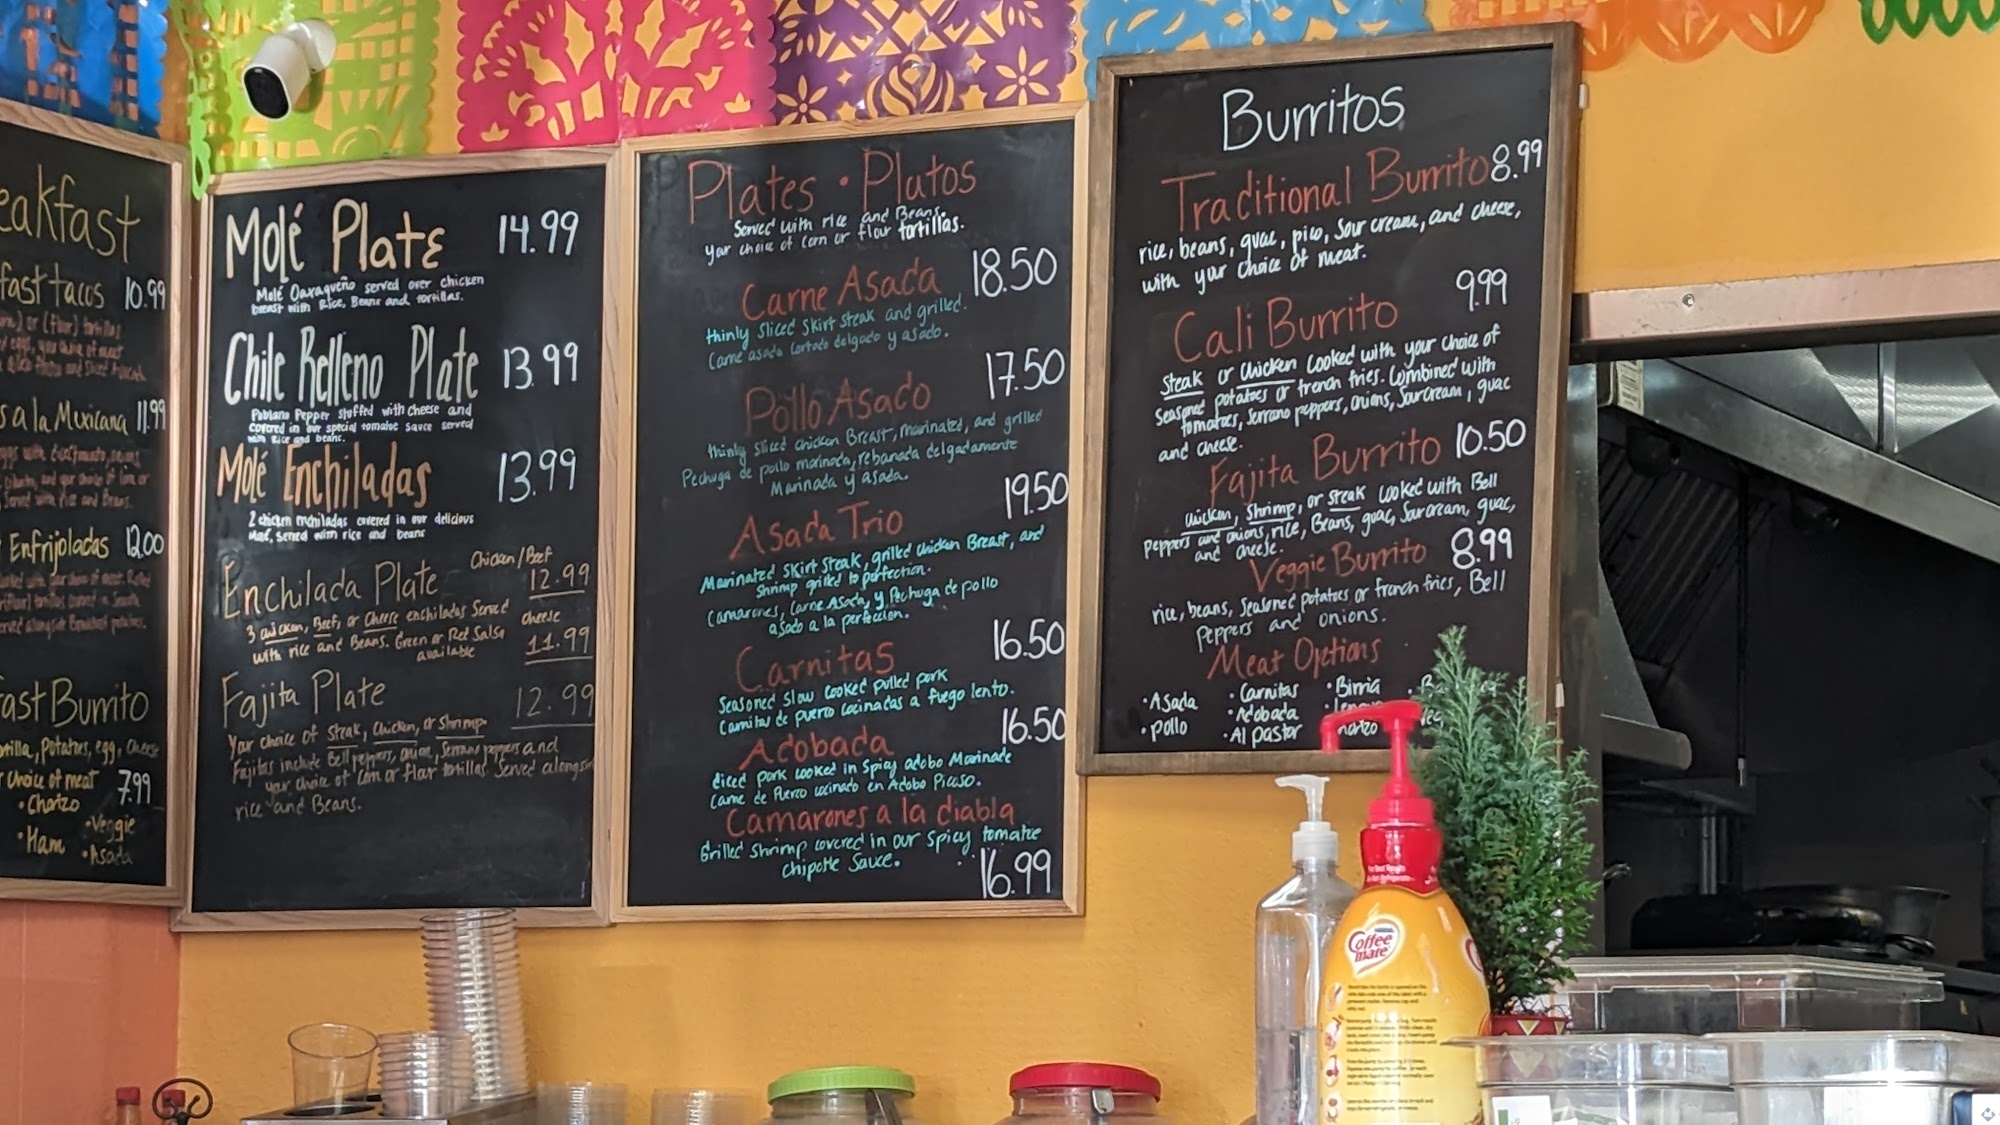 eakfast
fast tacos 10.99
s a la Mexicana 11.99
Enfrijoladas 12.00
ast Burrito
potatoes, egg, cheese
choice of meat 7.99
• Chorizo
• Veggie
• Ham
• Asada
Molé Plate 14.99
Molé Oaxaqueño served over chicken
breast with Rice, Beans and tortillas.
Chile Relleno Plate 13.99
Poblano Pepper stuffed with cheese and
covered in our special tomatoe sauce served
with Rice and beans.
Molé Enchiladas 13.99
2 chicken enchiladas covered in our delicious
Molé, served with rice and beans
Chicken/Beef
Enchilada Plate 12.99
3 chicken, Beef, or Cheese enchiladas Served cheese
with rice and Beans. Green or Red Salsa 11.99
available
Fajita Plate 12.99
Your choice of steak, Chicken, or Shrimp.
Fajitas include Bell peppers, onion, Serrano peppers and
your choice of corn or flour tortillas. Served alongsi
rice and Beans.
Plates • Plutos
Served with rice and Beans.
your choice of corn or flour tortillas.
Carne Asada 18.50
thinly sliced skirt steak and grilled.
Carne asada cortado delgado y asado.
Pollo Asado 17.50
thinly sliced chicken Breast, marinated, and grilled
Pechuga de pollo marinada, rebanada delgadamente
Marinada y asada.
Asada Trio 19.50
Marinated Skirt Steak, grilled chicken Breast, and
Shrimp grilled to perfection.
Camarones, Carne Asada, y Pechuga de pollo
asado a la perfeccion.
Carnitas 16.50
Seasoned slow cooked pulled pork
Carnitas de puerco cocinadas a fuego lento.
Adobada 16.50
diced pork cooked in spicy adobo Marinade
Carne de Puerco cocinado en Adobo Picoso.
Camarones a la diabla
Grilled Shrimp covered in our spicy tomatoe
chipotle Sauce. 16.99
Burritos
Traditional Burrito 8.99
rice, beans, guac, pico, Sour cream, and cheese,
with your choice of meat.
Cali Burrito 9.99
Steak or chicken cooked with your choice of
seasoned potatoes or french fries. Combined with
tomatoes, serrano peppers, onions, sourcream, guac
and cheese.
Fajita Burrito 10.50
chicken, shrimp, or steak cooked with Bell
peppers and onions, rice, Beans, guac, sourcream, guac,
and cheese.
Veggie Burrito 8.99
rice, beans, seasoned potatoes or french fries, Bell
Peppers and onions.
Meat Options
• Asada • Carnitas • Birria
• Pollo • Adobada
• Al pastor
Coffee
mate